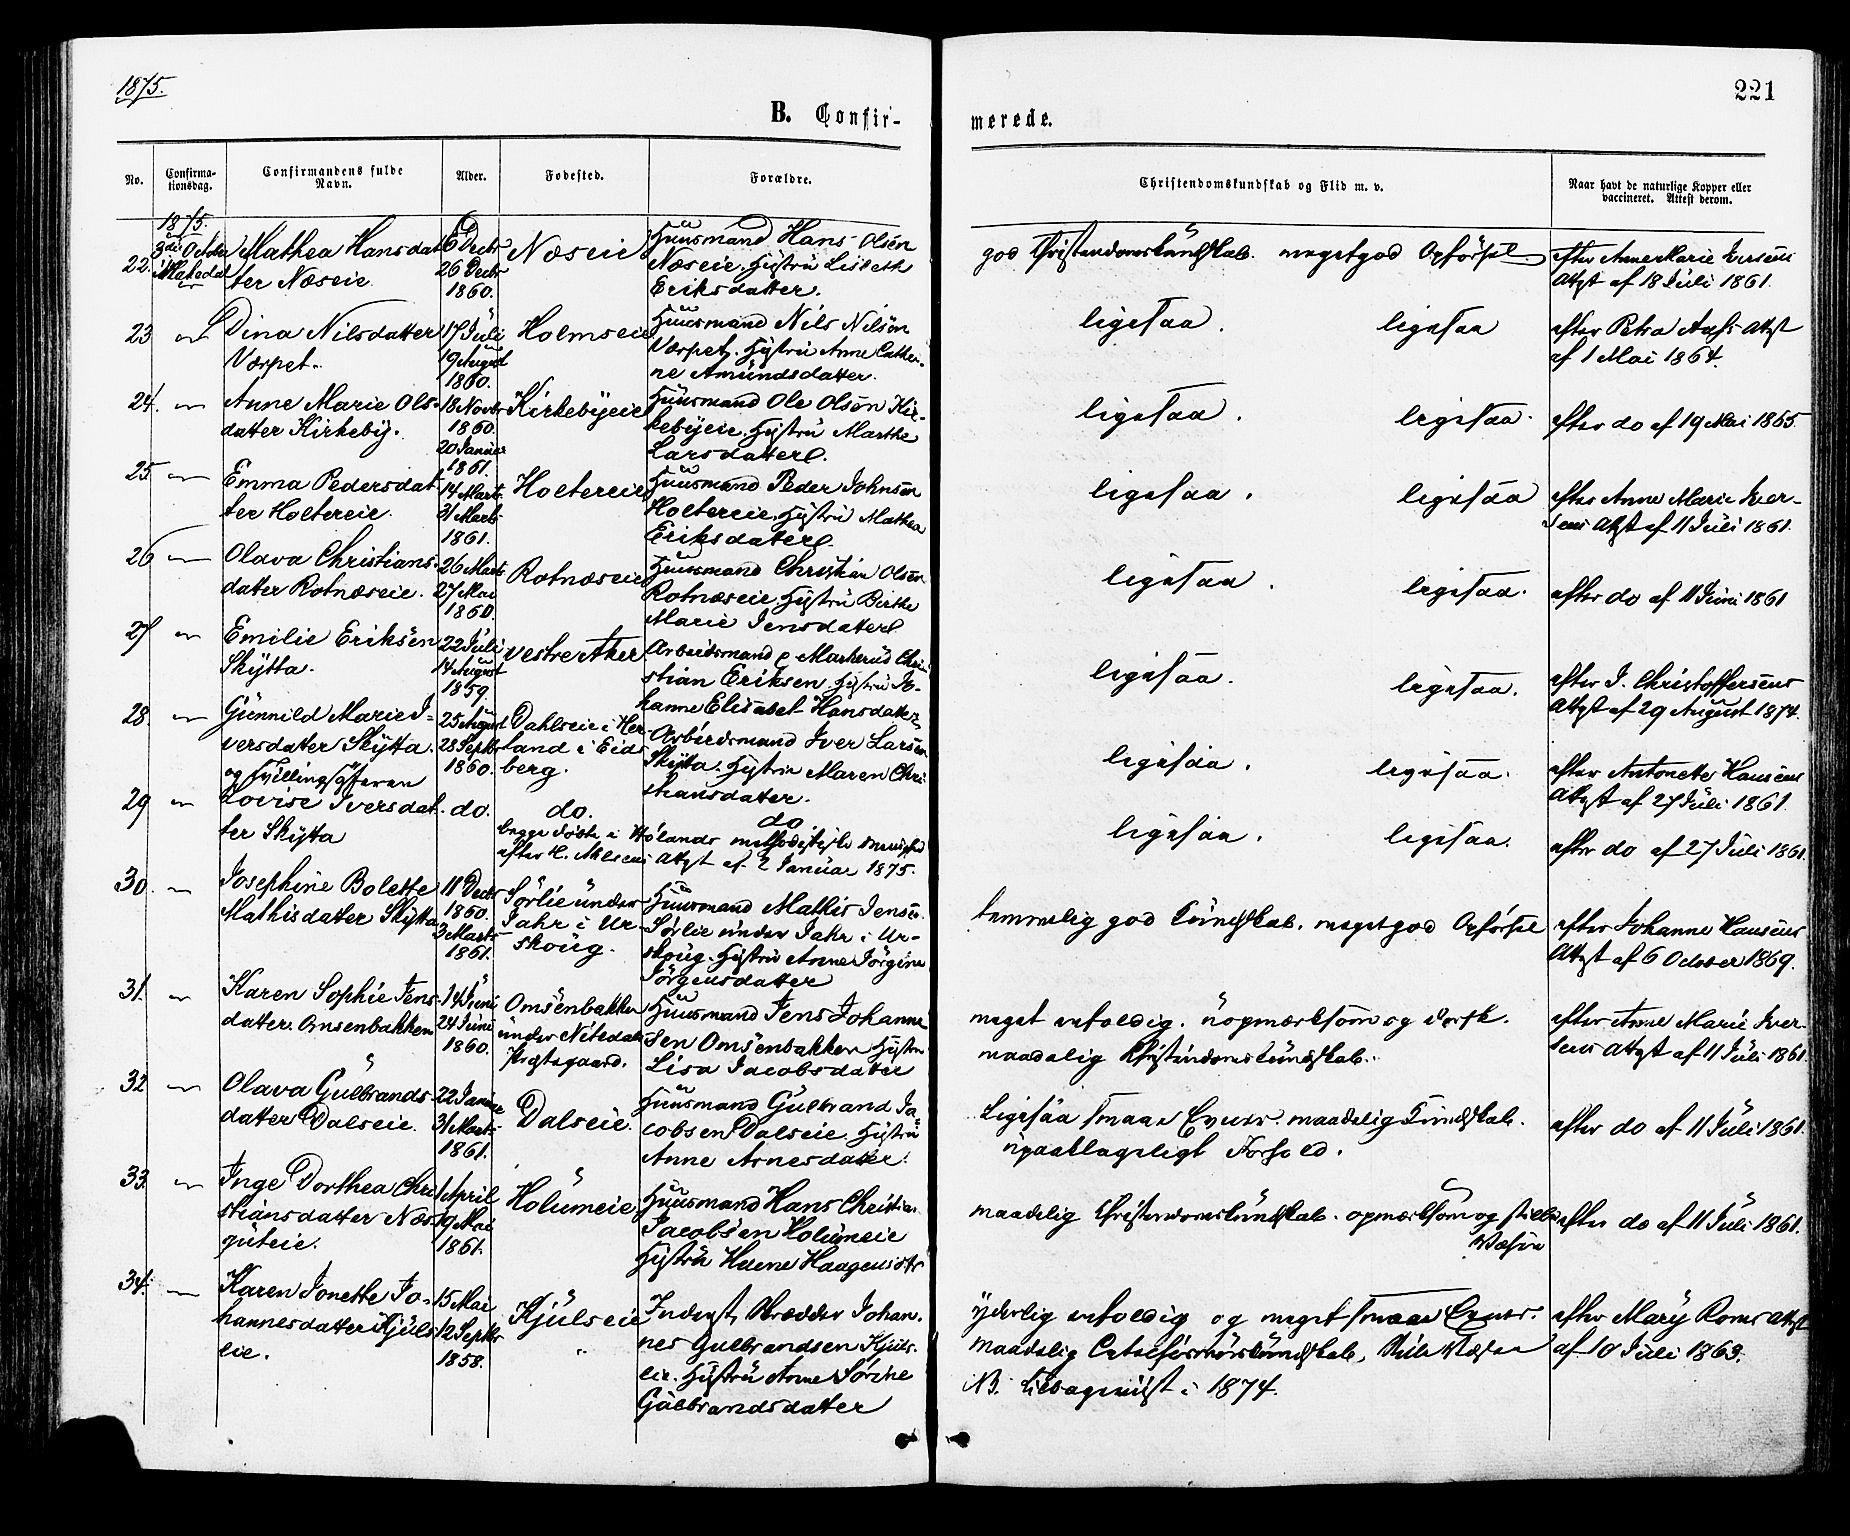 1875.
221
B. Confir-
merede.
No.
Confirma-
tionsdag.
Confirmandens fulde
Navn.
Alder.
Fødested.
Forældre.
Christendomskundskab og Flid m. v.
Naar havt de naturlige Kopper eller
vaccineret. Attest derom.
1875.
22.
3die Octobr
i Hakedal
Mathea Hansdat
ter Næseie.
6 Decbr
26 Decbr
1860.
Næseie
Huusmand Hans Olsen
Næseie. Hustru Lisbeth
Eriksdatter.
god Christendomskundskab. megetgod Opførsel
efter Anne Marie Iversens
Attst af 18 Juli 1861.
23
Dina Nilsdatter
Værpet.
17 Juli
19 August
1860.
Holmseie
Huusmand Nils Nilsen
Værpet. Hustru Anne Cathri-
ne Amundsdatter.
ligesaa. ligesaa
efter Petra Aas Attst
af 1 Mai 1864.
24.
Anne Marie Ols-
datter Kirkeby.
18 Novbr
1860.
20 Januar
1861.
Kirkebyeie
Huusmand Ole Olsen Kir-
kebyeie. Hustru Marthe
Larsdatter.
ligesaa. ligesaa.
efter do af 19 Mai 1865.
25
Emma Pedersdat
ter Holtereie.
14 Marts
31 Marts
1861.
Holtereie
Huusmand Peder Johnsen
Holtereie. Hustru Mathea
Eriksdatter.
ligesaa. ligesaa
efter Anne Marie Iver-
sens Attst af 11 Juli 1861.
26
Olava Christians-
datter Rotnæseie.
26 Marts
27 Mai
1860.
Rotnæseie
Huusmand Christian Olsen
Rotnæseie Hustru Birthe
Marie Jensdatter
ligesaa. ligesaa.
efter do af 11 Juni 1861
27
Emilie Eriksen
Skytta.
22 Juli
14 August
1859.
Vestre Aker
Arbeidsmand Markerud Chri
stian Eriksen Hustru Jo-
hanne Elisabet Hansdatter
ligesaa. ligesaa.
efter I. Christoffersens
Attst af 29 August 1874.
28.
Gunnild Marie I-
versdatter Skytta.
og Tvillingsøsteren
25 August
28 Septbr
1860.
Dahlseie i Her
land i Eids
berg.
Arbeidsmand Iver Larsen
Skytta. Hustru Maren Chri
stiansdatter.
ligesaa. ligesaa.
efter Antonette Hansens
Attst af 27 Juli 1861.
29
Lovise Iversdat
ter Skytta
do.
do.
do
begge døbte i Hølands methodistiske Menighed
efter H. Ahlsens Attst af 2 Januar 1875.
ligesaa. ligesaa.
efter do af 27 Juli 1861.
30.
Josephine Bolette
Mathisdatter Skytta
11 Decbr
1860.
3 Marts
1861.
Sørlie under
Jahr i Ur-
skoug.
Huusmand Mathis Jensen
Sørlie under Jahr i Ur-
skoug. Hustru Anne Jørgine
Jørgensdatter
temmelig god Kundskab. megetgod Opførsel
efter Johanne Hansens
Attst af 6 October 1869.
31.
Karen Sophie Jens-
datter Omsenbakken
14 Juni
24 Juni
1860.
Omsenbakken
under Nitedals
Prestegaard.
Huusmand Jens Johanne
sen Omsenbakken Hustru
Lisa Jacobsdatter
meget enfoldig. uopmærksom og dorsk.
maadelig Christendomskundskab.
efter Anne Marie Iver-
sens Attst af 11 Juli 1861.
32
Olava Gulbrands-
datter Dalseie.
22 Januar
31 Marts
1861.
Dalseie.
Huusmand Gulbrand Ja
cobsen Dalseie. Hustru
Anne Arnesdatter.
Ligesaa smaae Evner. maadelig Kundskab.
upaaklageligt Forhold.
efter do af 11 Juli 1861.
33.
Inge Dorthea Chri
stiansdatter Næs
guteie.
1 April
19 Mai
1861.
Holumeie
Huusmand Hans Christian
Jacobsen Holumeie
Hustru Helene Haagensdtr
maadelig Christendomskundskab. opmærksom og stille
Væsen
efter do af 11 Juli 1861.
34.
Karen Jonette Jo-
hannesdatter Kjuls
eie.
15 Mai
12 Septbr
1858.
Kjulseie
Inderst, Skrædder Johan-
nes Gulbrandsen Kjuls-
eie. Hustru Anne Sørine
Gulbrandsdatter
yderlig enfoldig og meget smaae Evner.
maadelig Catechismuskundskab, stille Væsen
NB. tilbagevist i 1874.
efter Mary Roms Attst
af 10 Juli 1863.